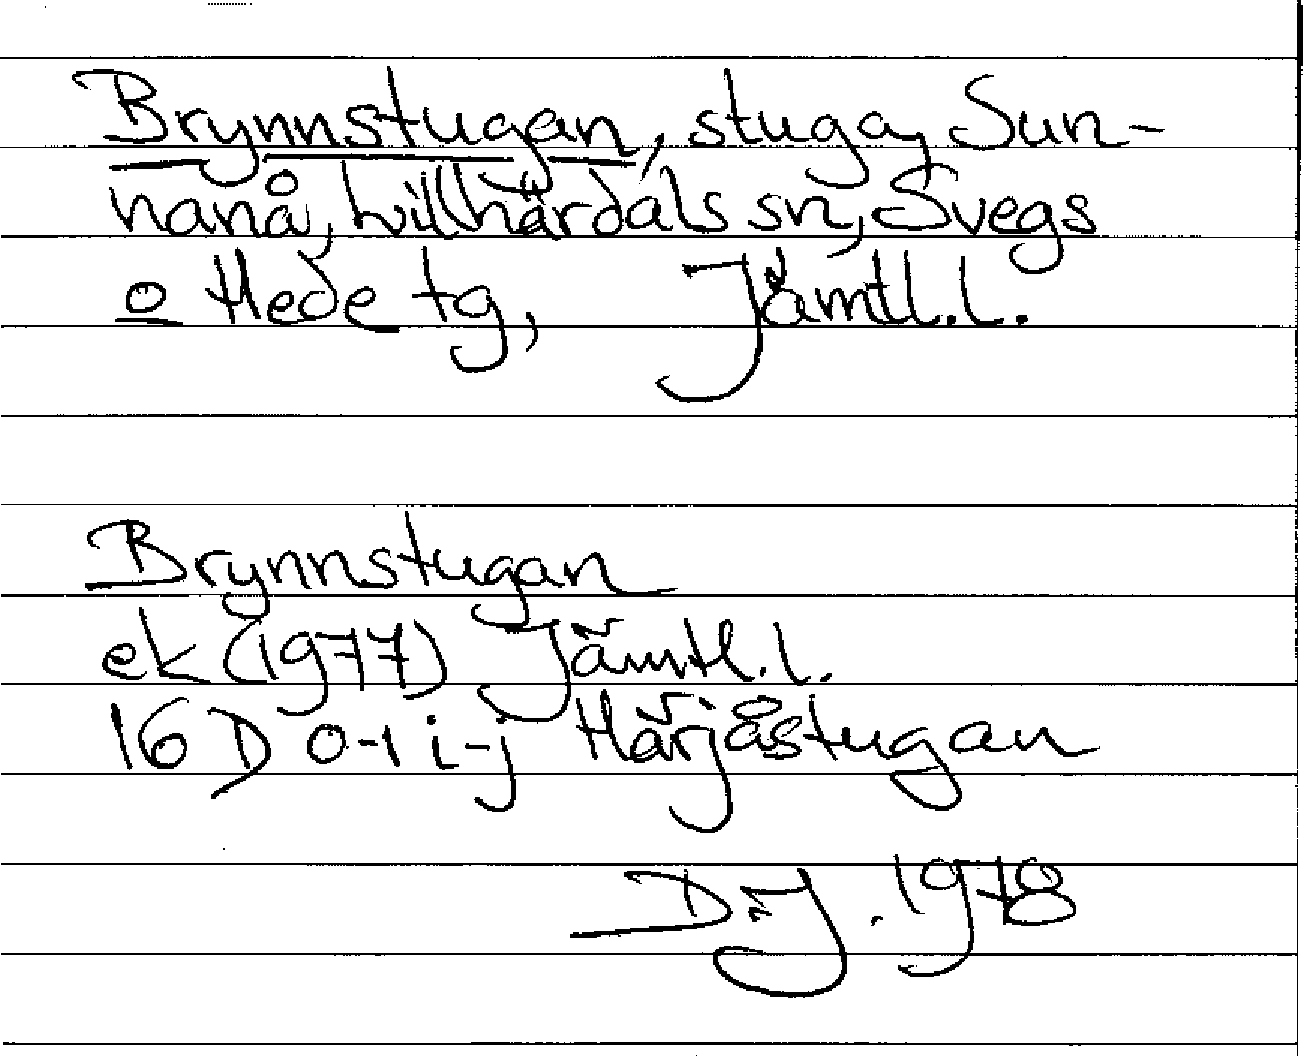 Brynnstugan, stuga, Sun-
nanå, Lillhärdals sn, Svegs
o Hede tg, Jämtl. l.
Brynnstugan
ek (1977) Jämtl. l.
16 D 0-1 i-j Härjåstugan
1978